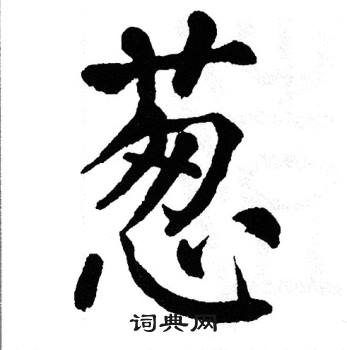 葱
词典网